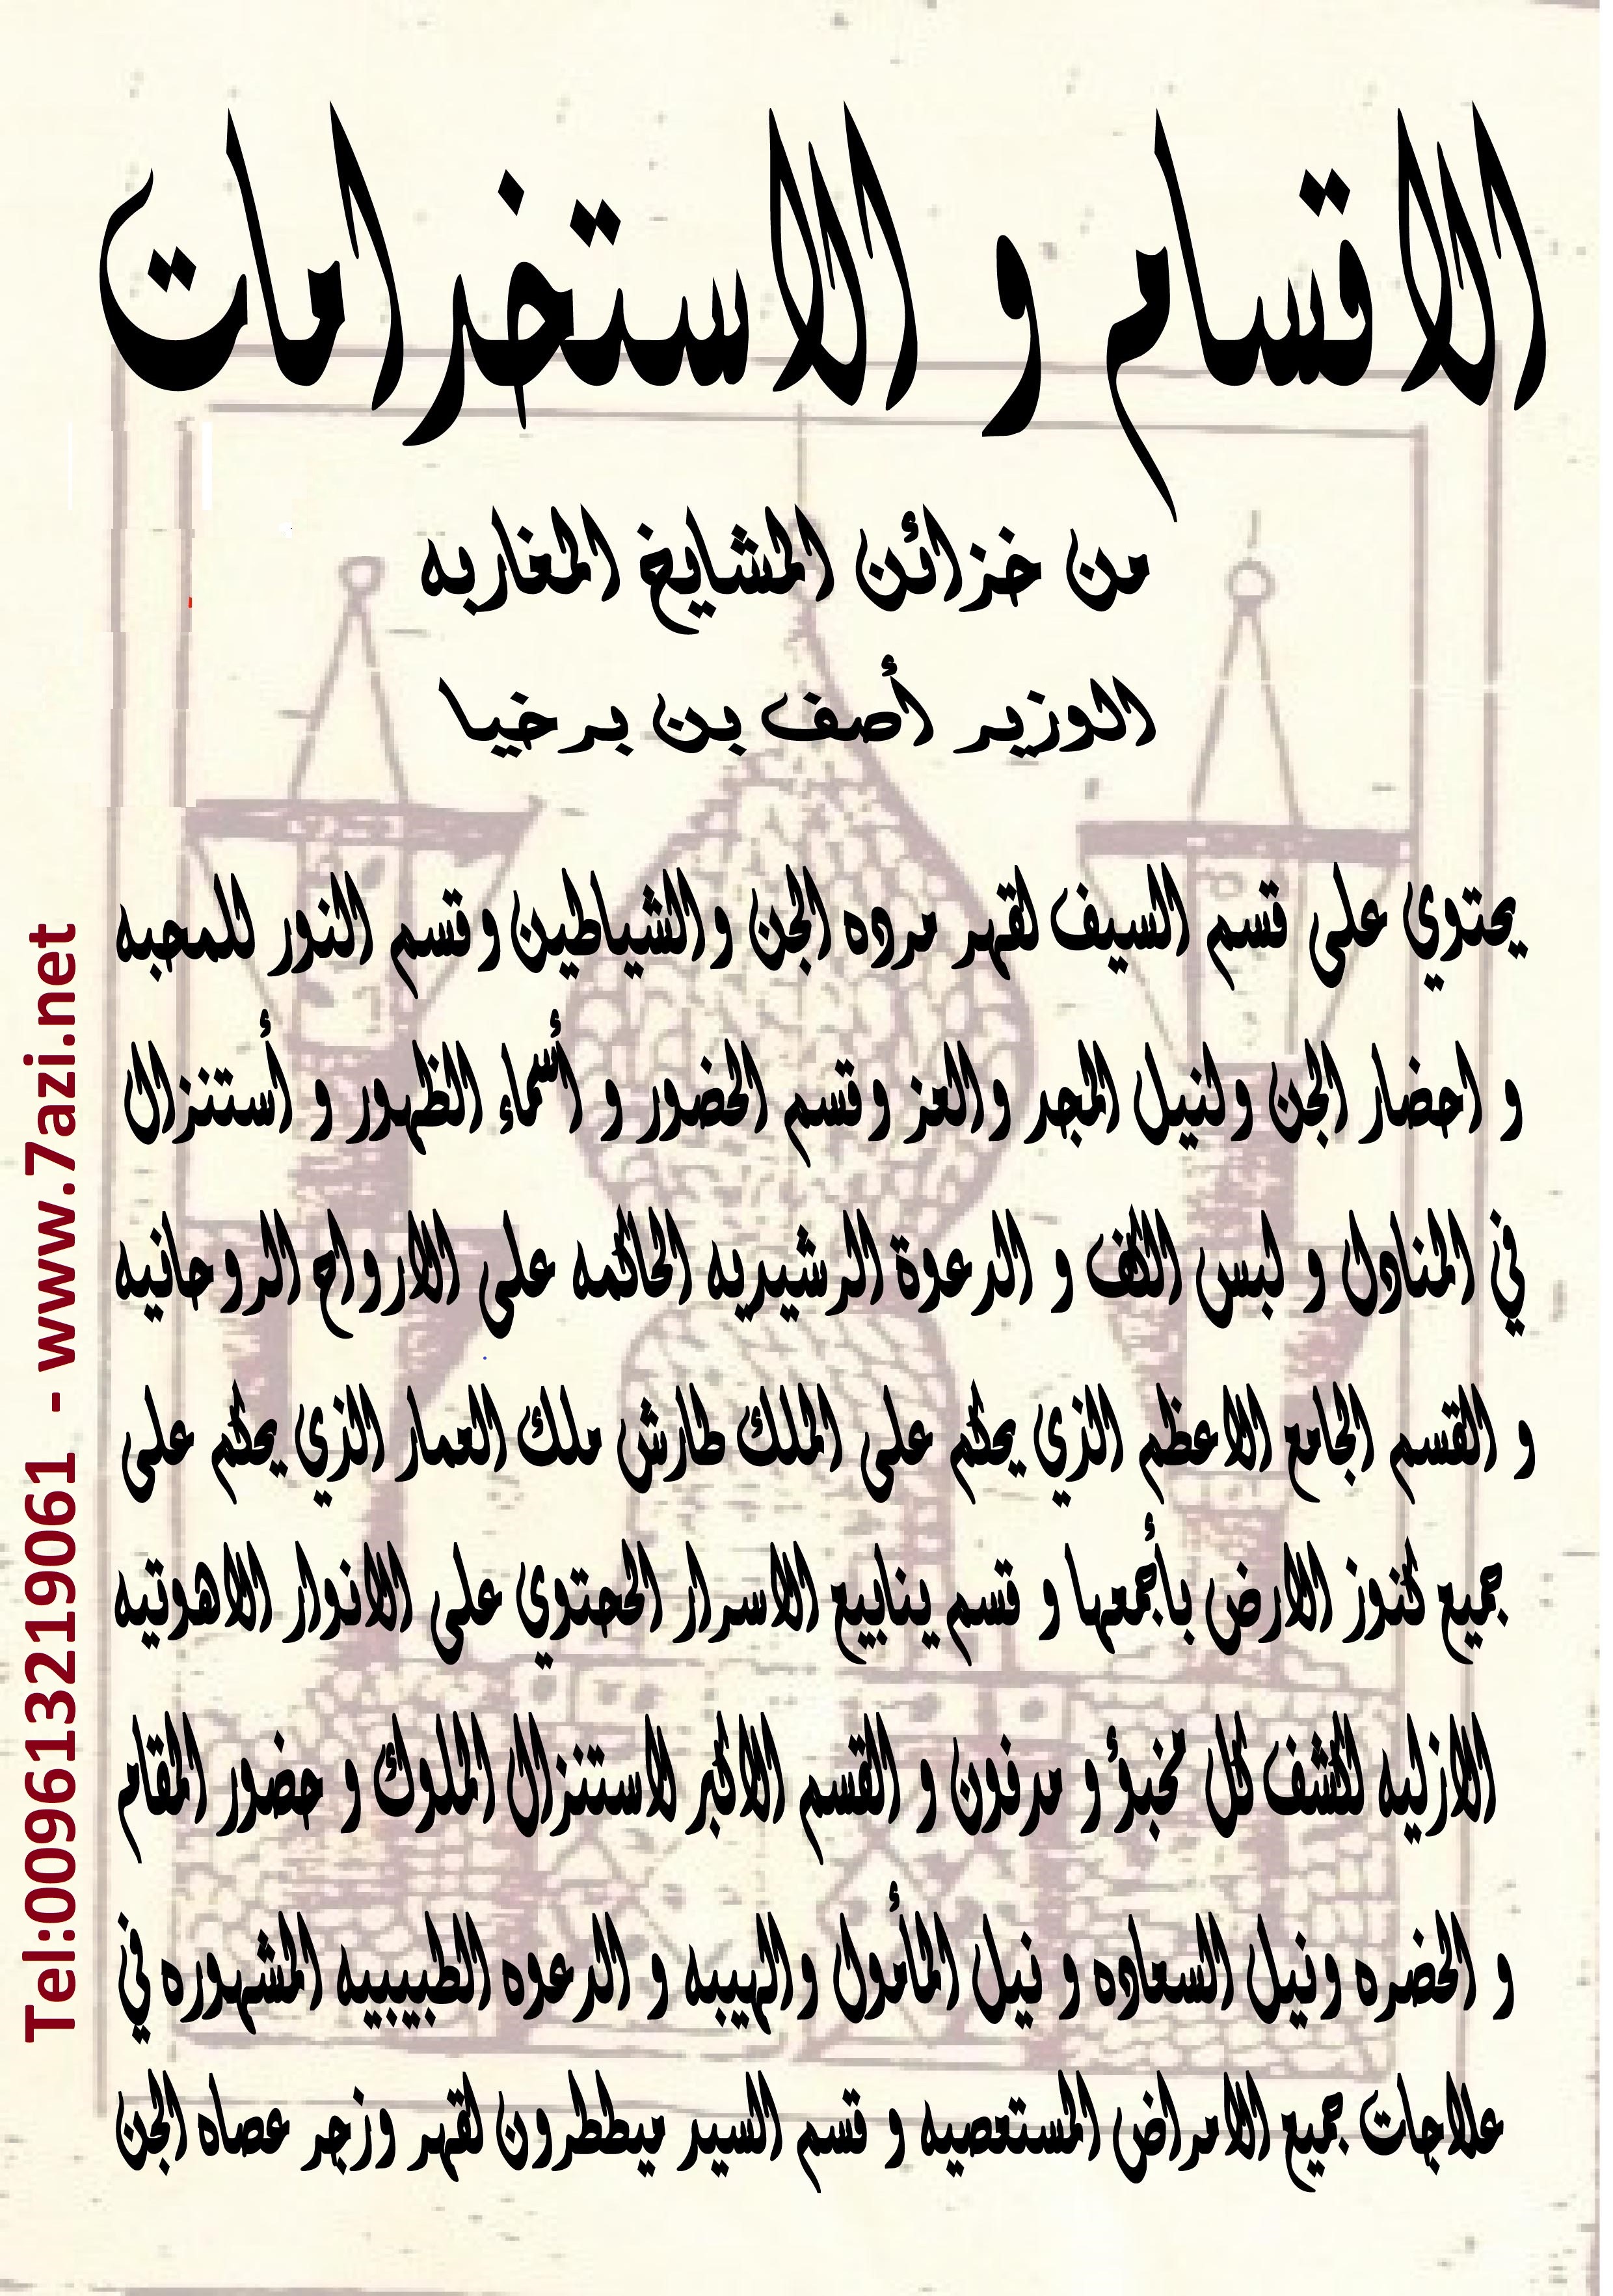 الاقسام و الاستخدامات
من خزائن المشايخ المغاربه
الوزير أصف بن برخيا
يحتوي على قسم السيف لقهر مرده الجن والشياطين وقسم النور للمحبه
و احضار الجن ولنيل المجد والعز وقسم الحضور و أسماء الظهور و أستنزال
في المنادل و لبس الكف و الدعوة الرشيديه الحاكمه على الارواح الروحانيه
و القسم الجامع الاعظم الذي يحكم على الملك طارش ملك العمار الذي يحكم على
جميع كنوز الارض بأجمعها و قسم ينابيع الاسرار المحتوي على الانوار الاهوتيه
الازليه لكشف كل مخبؤ و مدفون و القسم الاكبر لاستنزال الملوك و حضور المقام
و الحضره ونيل السعاده و نيل المأمول والهيبه و الدعوه الطبيبيه المشهوره في
علاجات جميع الامراض المستعصيه و قسم السيد ميططرون لقهر وزجر عصاه الجن
Tel:0096132219061 - www.7azi.net